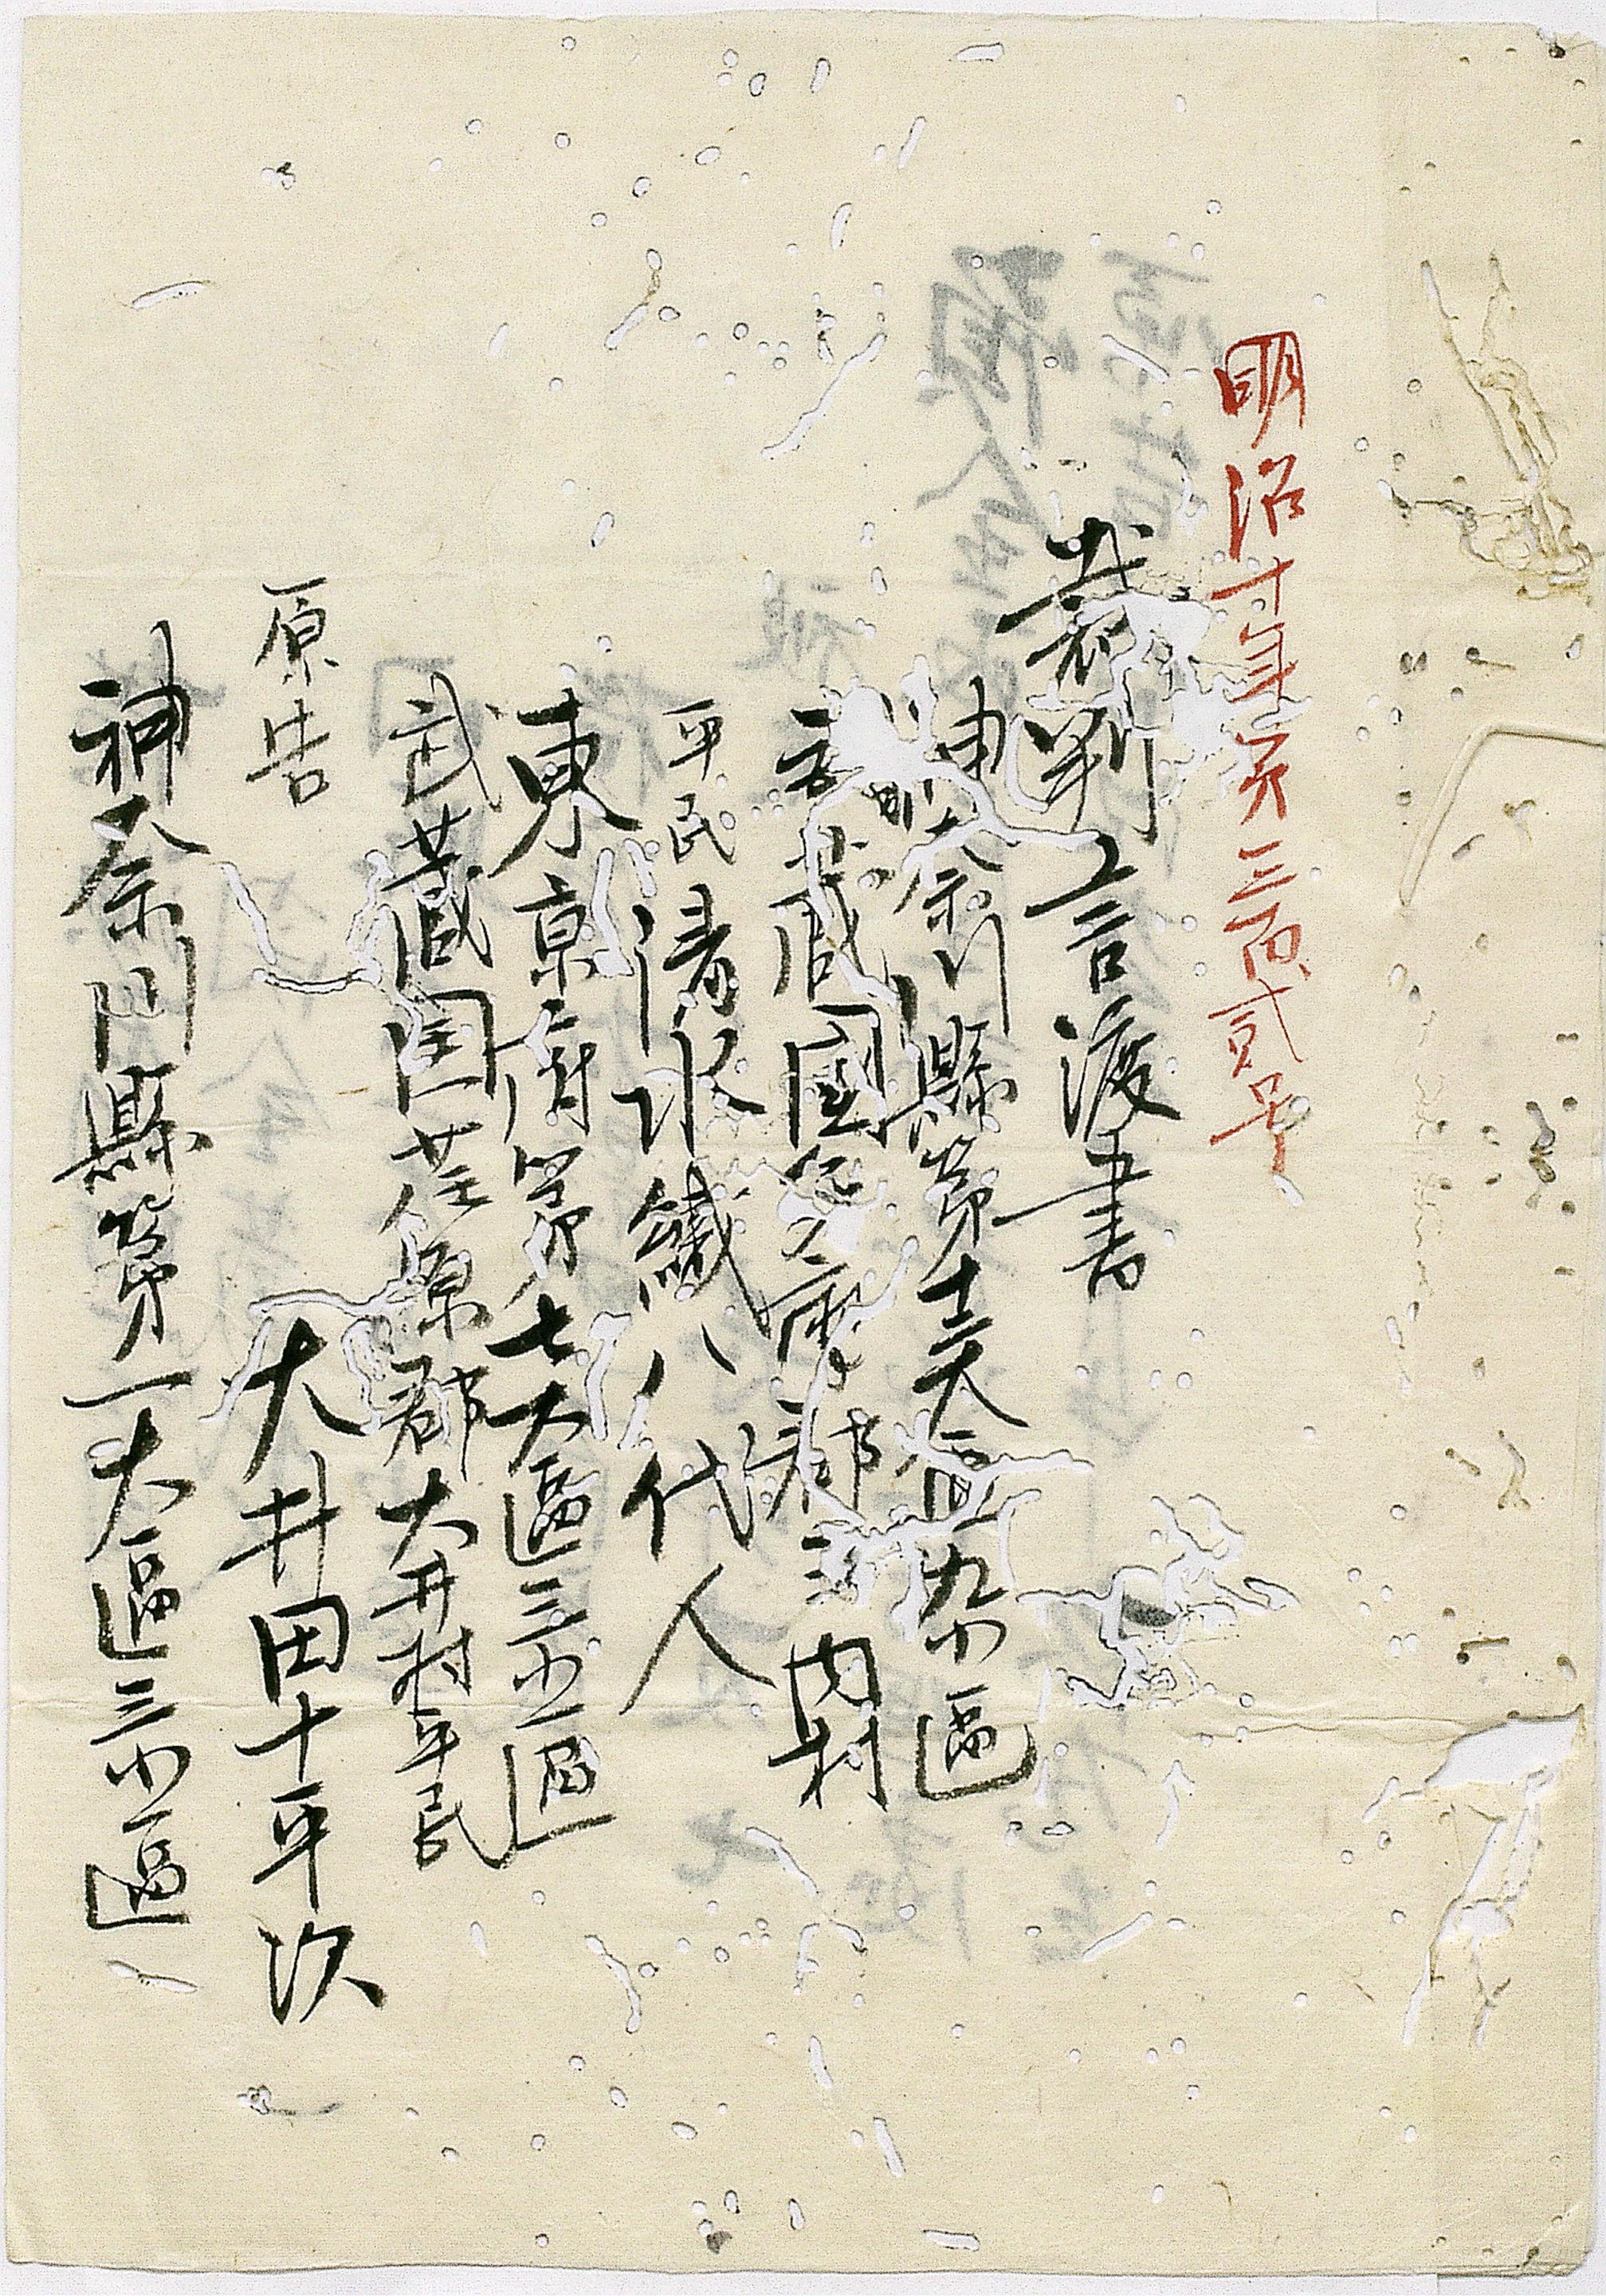 明治十年第三百貳号
裁判言渡書
神奈川縣第十大區九小區
武藏國高座郡 内村
平民 清水織八代人
東京府第七大區三小區
武蔵国荏原郡大井村平民
大井田十平次
原告
神奈川縣第一大區三小區